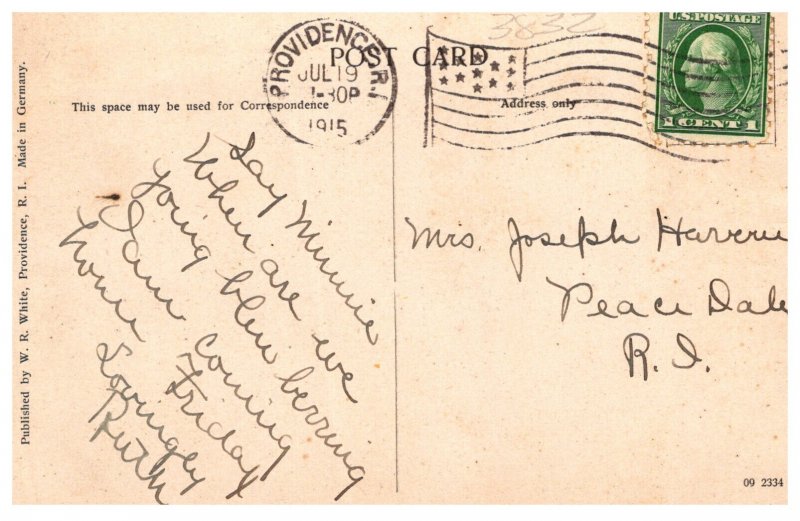 3832
PROVIDENCE, R.I.
JUL 19
1-30P
1915
POST CARD
U.S. POSTAGE
1 CENT 1
This space may be used for Correspondence
Address only
Say Minnie
When are we
going blew berring
I am coming
home Friday
Lovingly
Ruth
Mrs. Joseph Haveru
Peace Dale
R. I.
Published by W. R. White, Providence, R. I. Made in Germany.
09 2334